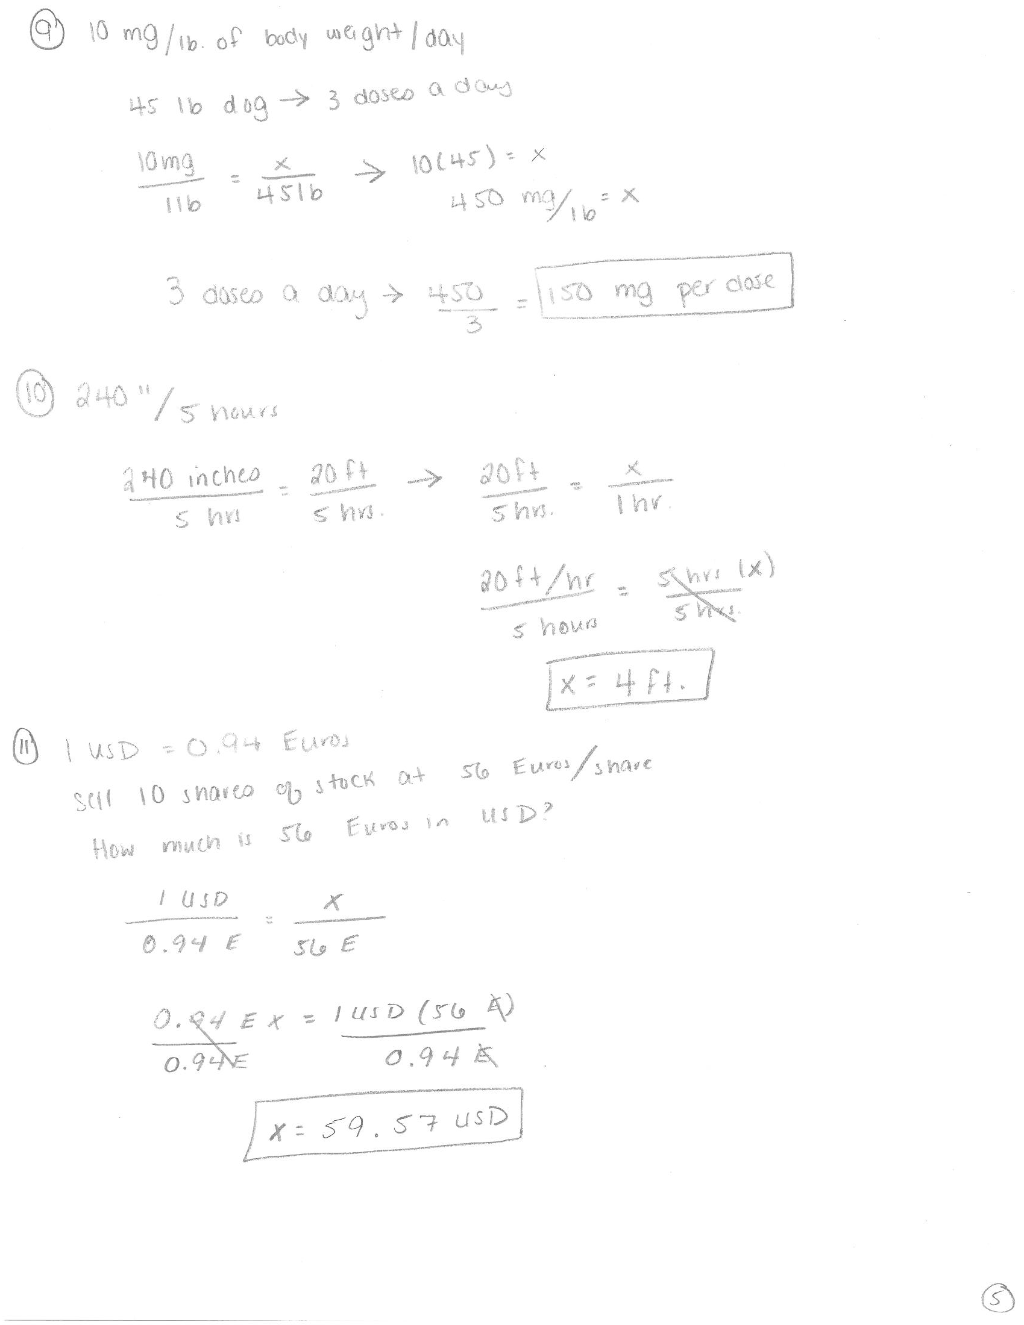 9 10 mg/lb. of body weight / day
45 lb dog → 3 doses a day
10mg/1lb = x/45lb → 10(45) = x
450 mg/lb = x
3 doses a day → 450/3 = 150 mg per dose
10 240"/5 hours
240 inches/5 hrs = 20 ft/5 hrs. → 20ft/5 hrs. = x/1 hr.
20ft/hr/5 hours = 5 hrs (x)/5 hrs.
x = 4 ft.
11 1 USD = 0.94 Euros
Sell 10 shares of stock at 56 Euros/share
How much is 56 Euros in USD?
1 USD/0.94 E = x/56 E
0.94 E x/0.94E = 1 USD (56 E)/0.94 E
x = 59.57 USD
5